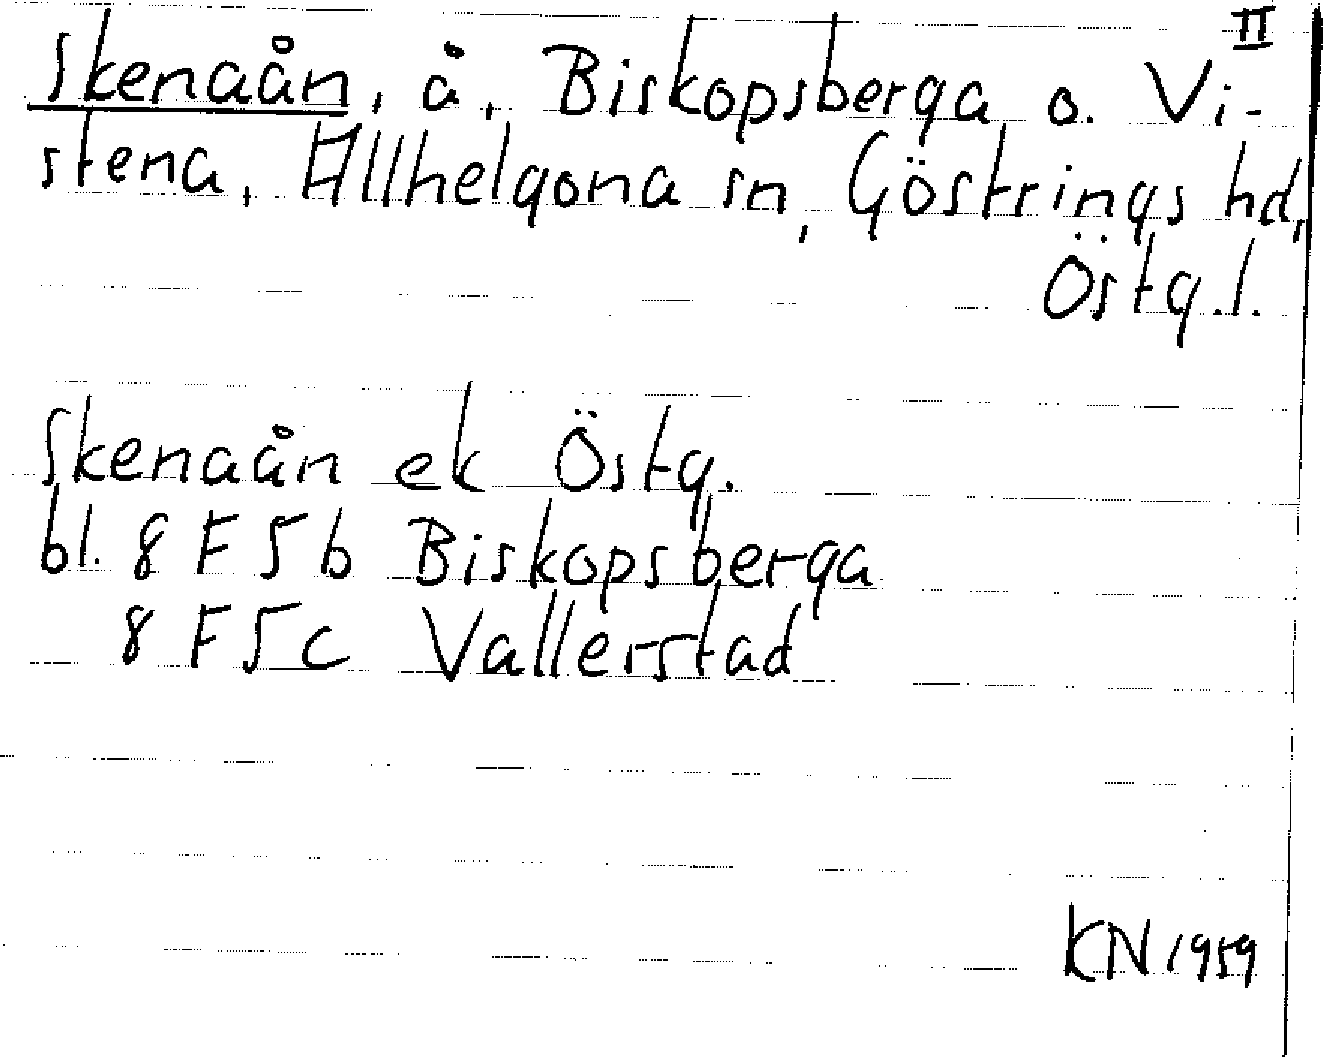 II
Skenaån, å, Biskopsberga o. Vi-
stena, Allhelgona sn, Göstrings hd,
Östg.l.
Skenaån ek Östg.
bl. 8 F 5 b Biskopsberga
8 F 5 c Vallerstad
KN 1959